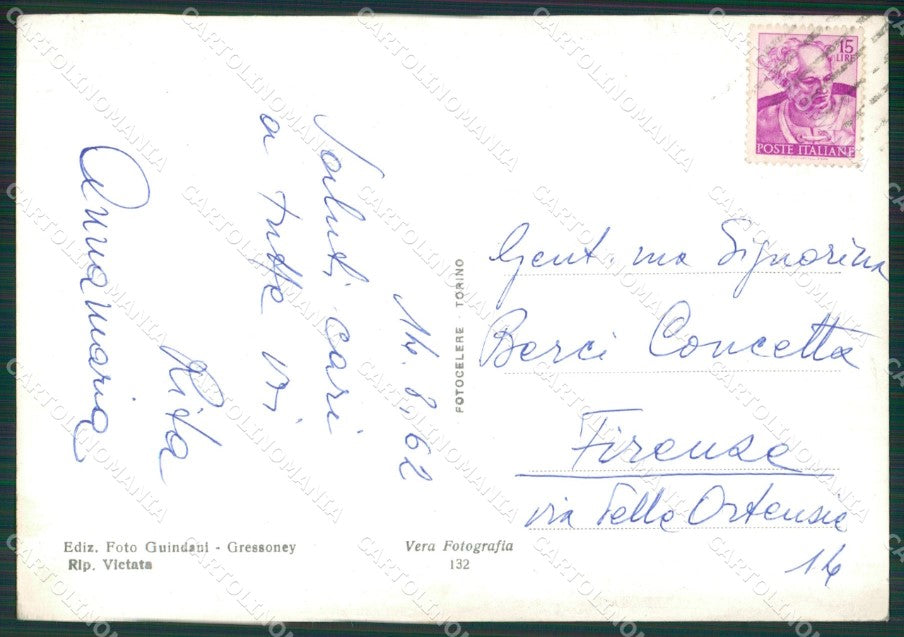 14.8.62
Saluti cari
a tutte voi
Rita
Annamaria
15
LIRE
POSTE ITALIANE
Gent.ma Signorina
Berci Concetta
Firenze
via delle Ortensie
14
FOTOCELERE - TORINO
Ediz. Foto Guindani - Gressoney
Rip. Vietata
Vera Fotografia
132
CARTOLINOMANIA